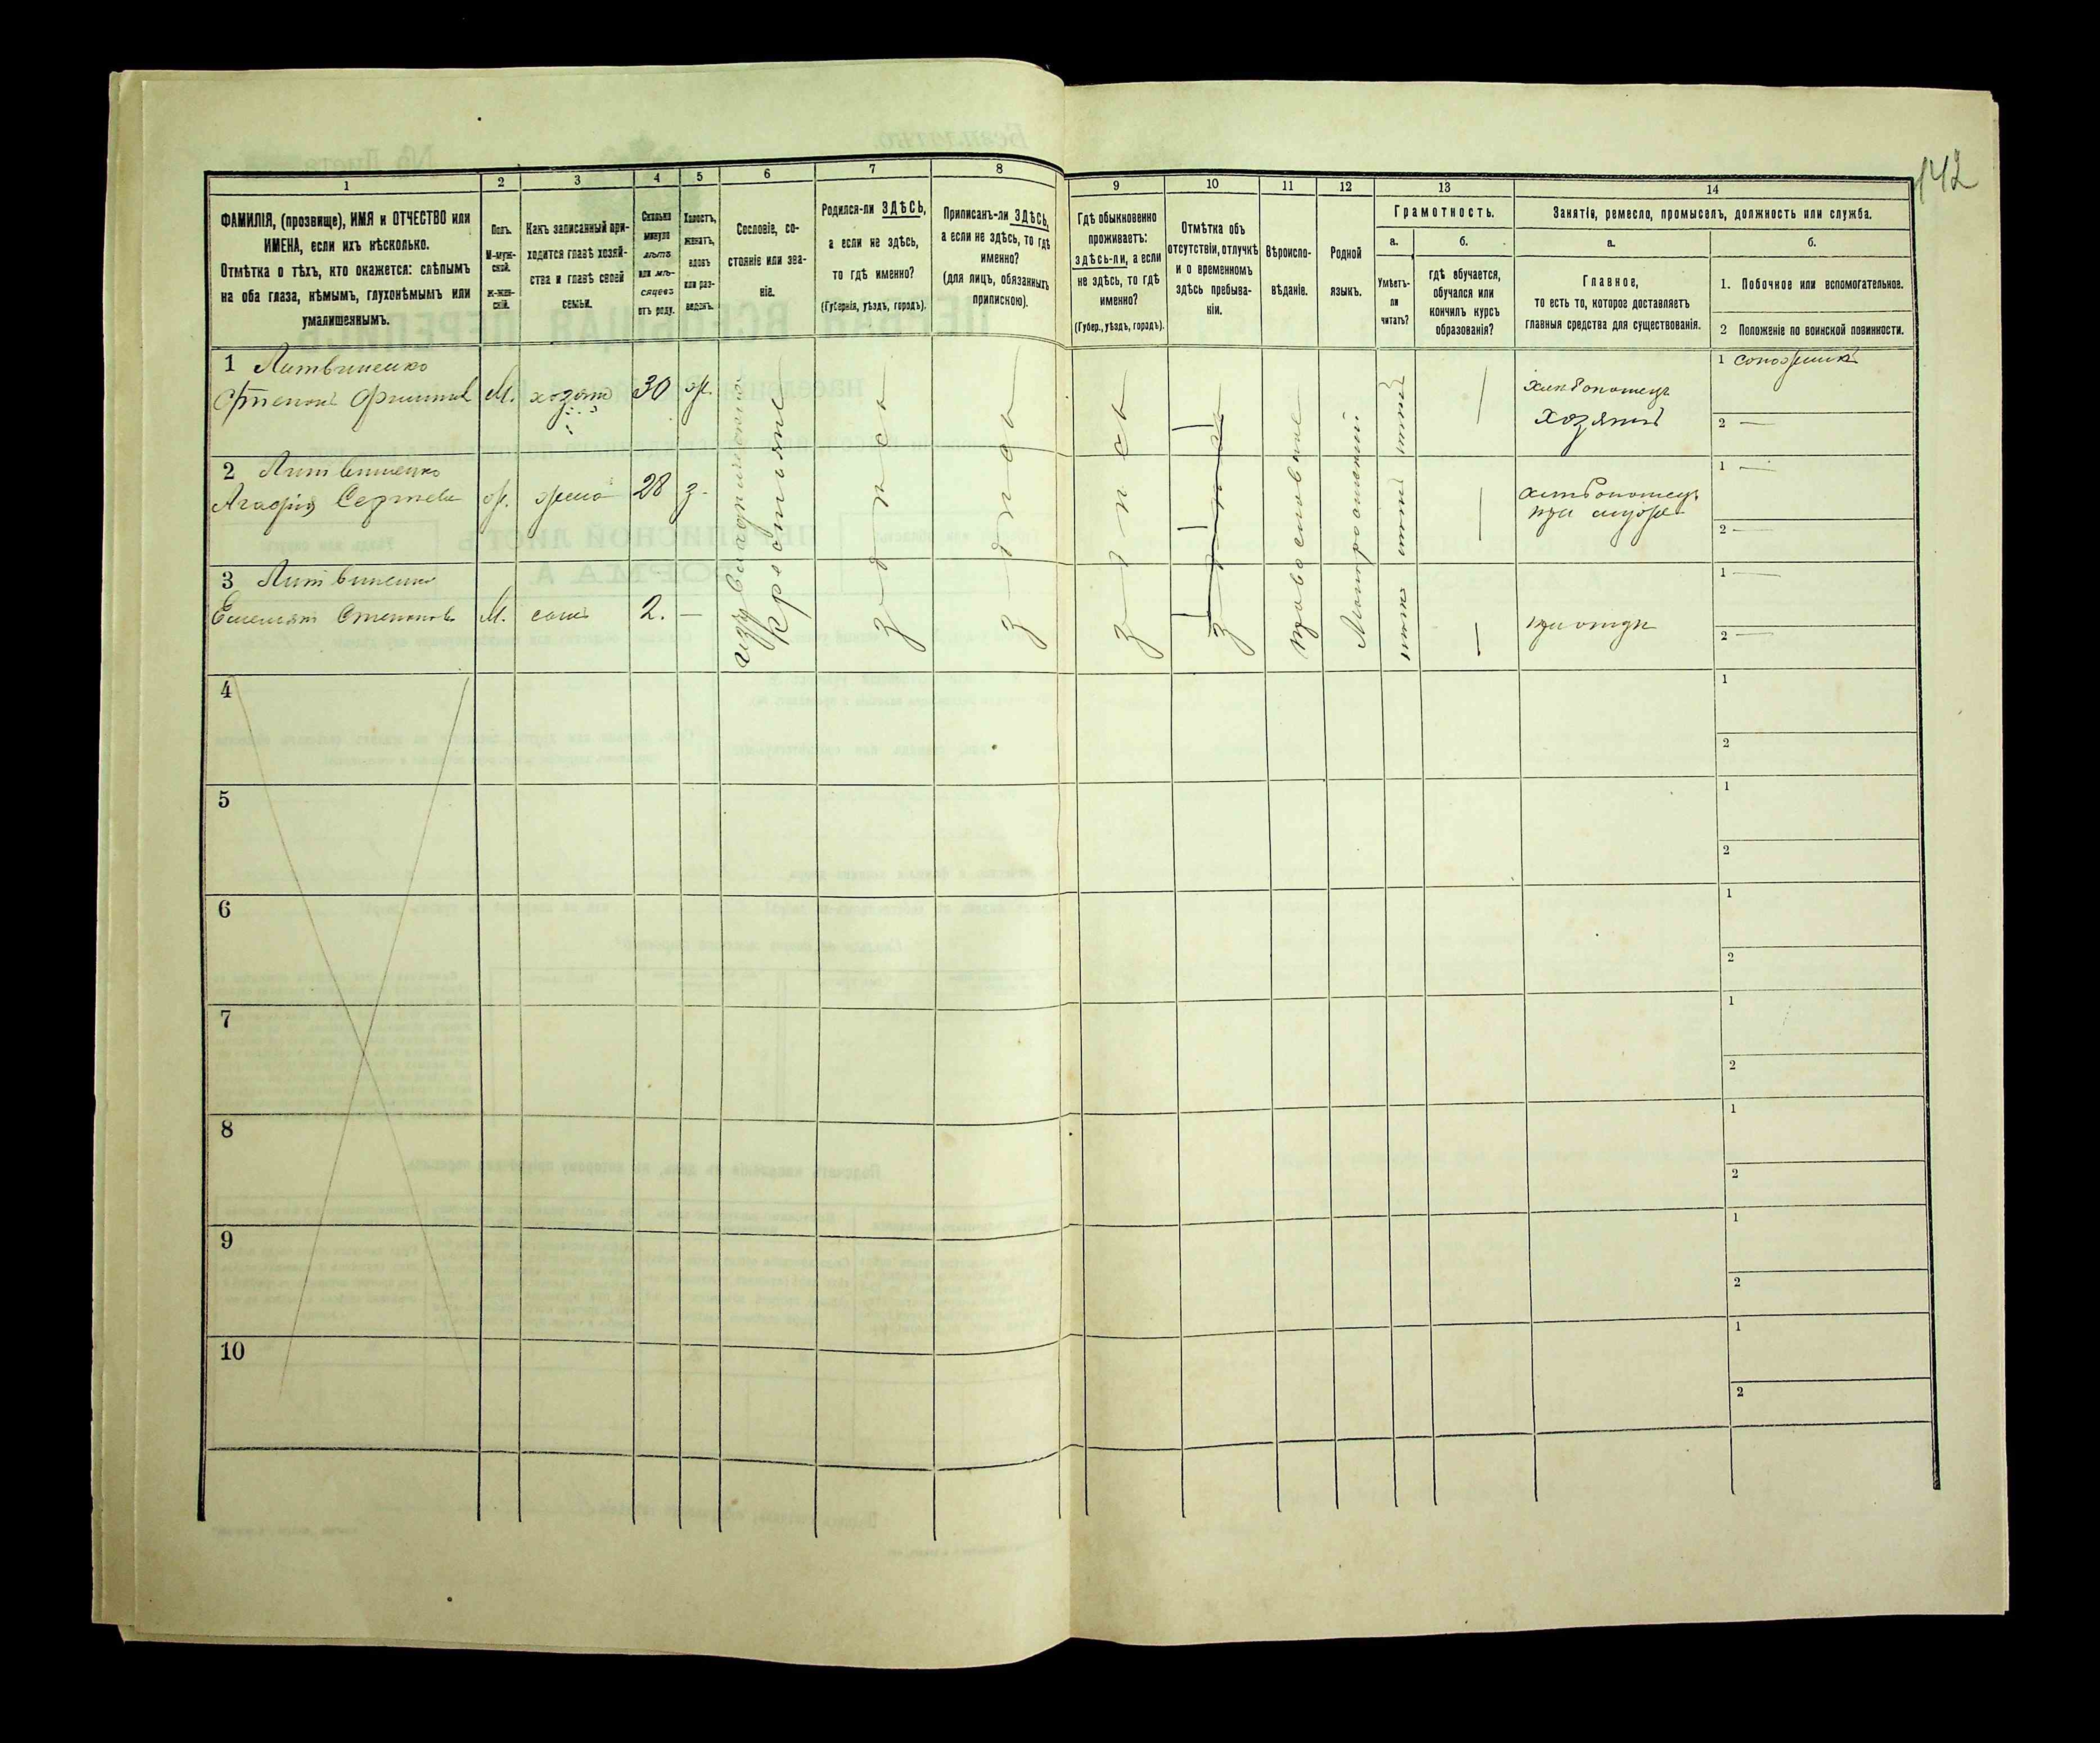 142
1 2 3 4 5 6 7 8 9 10 11 12 13 14
ФАМИЛІЯ, (прозвище), ИМЯ и ОТЧЕСТВО или
ИМЕНА, если ихъ нѣсколько.
Отмѣтка о тѣхъ, кто окажется: слѣпымъ
на оба глаза, нѣмымъ, глухонѣмымъ или
умалишеннымъ.
Полъ.
М-муж-
ской.
Ж-жен-
скій.
Какъ записанный при-
ходится главѣ хозяй-
ства и главѣ своей
семьи.
Сколько
минуло
лѣтъ
или мѣ-
сяцевъ
отъ роду.
Холостъ,
женатъ,
вдовъ
или раз-
веденъ.
Сословіе, со-
стояніе или зва-
ніе.
Родился-ли ЗДѢСЬ,
а если не здѣсь,
то гдѣ именно?
(Губернія, уѣздъ, городъ).
Приписанъ-ли ЗДѢСЬ,
а если не здѣсь, то гдѣ
именно?
(для лицъ, обязанныхъ
припискою).
Гдѣ обыкновенно
проживаетъ:
здѣсь-ли, а если
не здѣсь, то гдѣ
именно?
(Губер., уѣздъ, городъ).
Отмѣтка объ
отсутствіи, отлучкѣ
и о временномъ
здѣсь пребыва-
ніи.
Вѣроиспо-
вѣданіе.
Родной
языкъ.
Грамотность.
а.
Умѣетъ-
ли
читать?
б.
гдѣ обучается,
обучался или
кончилъ курсъ
образованія?
Занятіе, ремесло, промыселъ, должность или служба.
а.
Главное,
то есть то, которое доставляетъ
главныя средства для существованія.
б.
1. Побочное или вспомогательное.
2 Положеніе по воинской повинности.
1 Литвиненко
Степанъ М. хозяинъ 30 ж.
крестьяне
здѣсь
здѣсь
здѣсь
здѣсь
православные
Малоросійскій
нѣтъ
хлѣбопашецъ
хозяинъ
1 сапожникъ
2 —
2 Литвиненко
Агафія Сергѣева ж. жена 28 з.
нѣтъ —
хлѣбопашецъ
при мужѣ
1 —
2 —
3 Литвиненко
Емельянъ Степановъ М. сынъ 2. —
нѣтъ —
при отцѣ
1 —
2 —
4
1
2
5
1
2
6
1
2
7
1
2
8
1
2
9
1
2
10
1
2